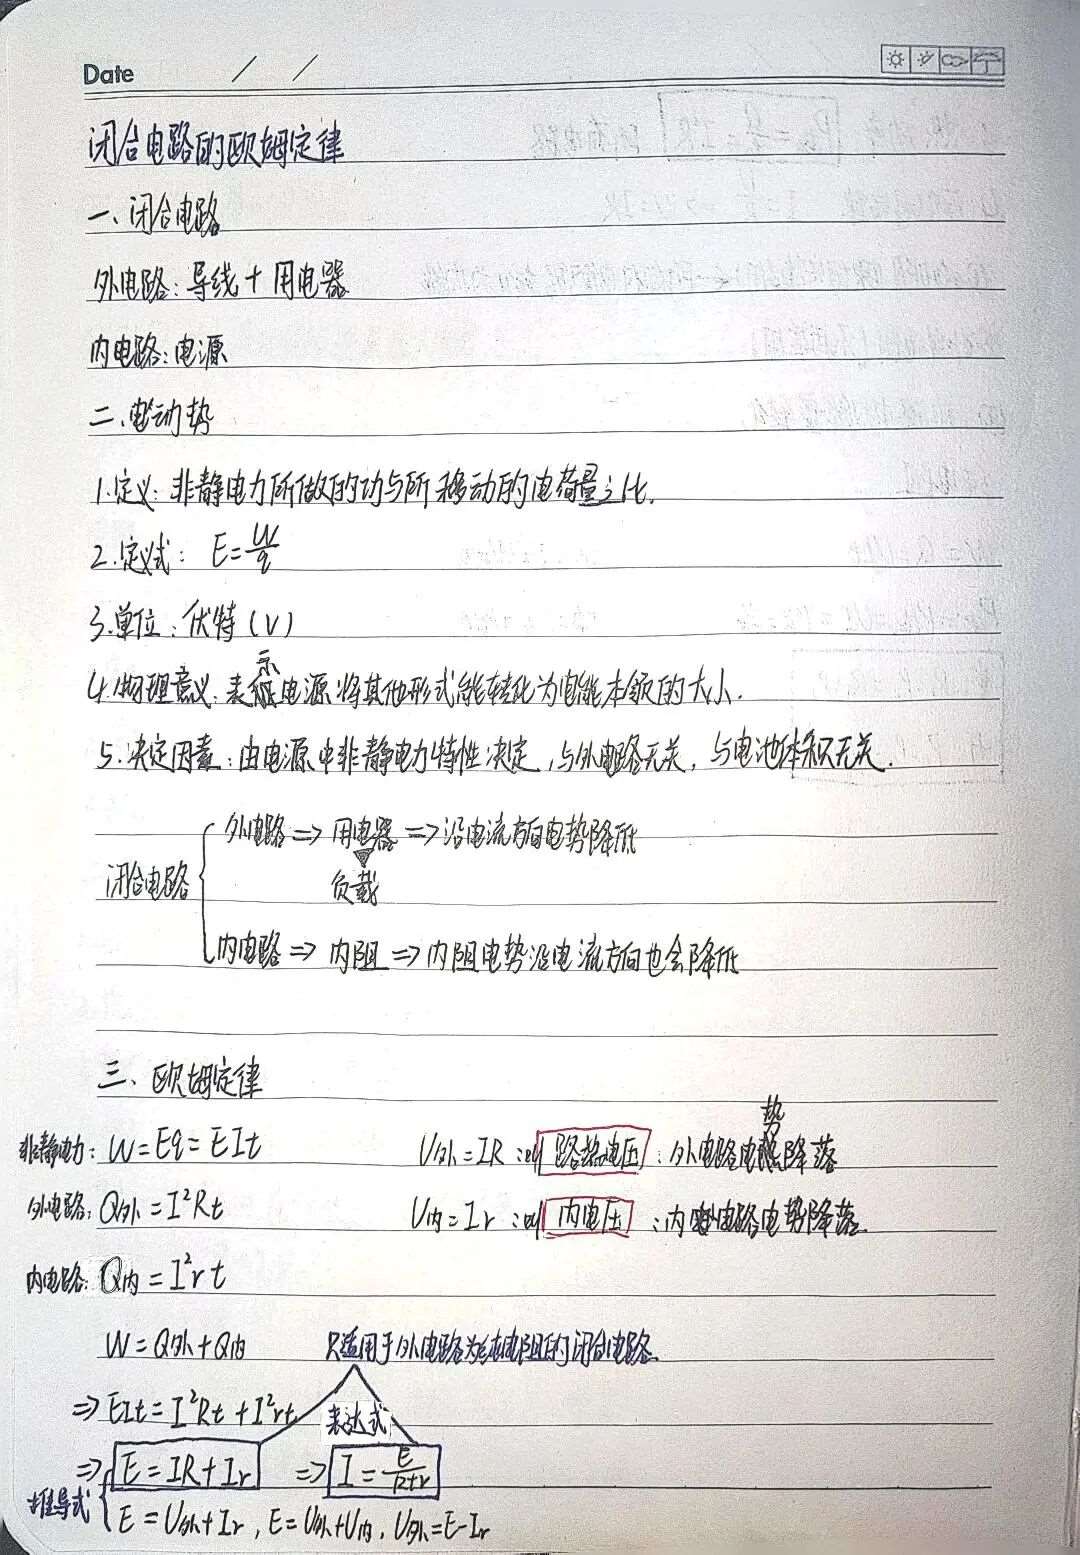 Date / /
闭合电路的欧姆定律
一、闭合电路
外电路：导线＋用电器
内电路：电源
二、电动势
1.定义：非静电力所做的功与所移动的电荷量之比.
2.定义式： E=W/q
3.单位：伏特（V）
4.物理意义：表示电源将其他形式能转化为电能本领的大小.
5.决定因素：由电源中非静电力特性决定，与外电路无关，与电池体积无关.
闭合电路
外电路 ⇒ 用电器 ⇒ 沿电流方向电势降低
负载
内电路 ⇒ 内阻 ⇒ 内阻电势沿电流方向也会降低
三、欧姆定律
非静电力： W=Eq=EIt U外=IR：叫 路端电压 ：外电路电势降落
外电路： Q外=I²Rt U内=Ir：叫 内电压 ：内电路电势降落.
内电路： Q内=I²rt
W=Q外+Q内 只适用于外电路为纯电阻的闭合电路.
⇒ EIt=I²Rt+I²rt 表达式
⇒ E=IR+Ir ⇒ I=E/(R+r)
推导式 E=U外+Ir , E=U外+U内 , U外=E-Ir